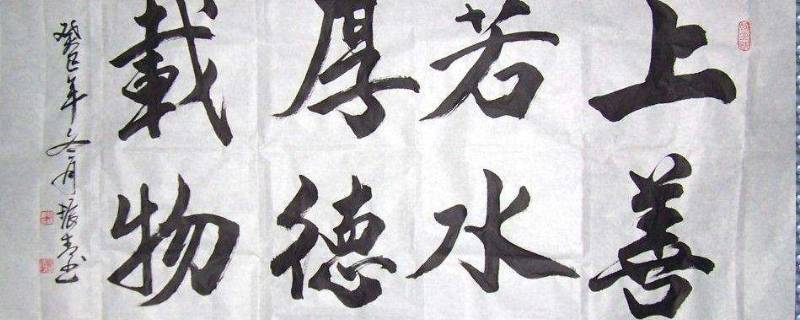 上善
若水
厚德
載物
癸巳年冬月振